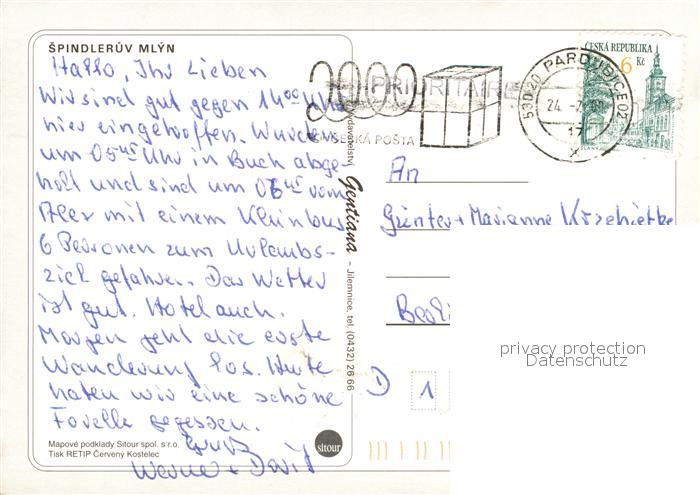 ŠPINDLERŮV MLÝN
Hallo, Ihr Lieben
Wir sind gut gegen 14⁰⁰ Uhr
hier eingetroffen. Wurden
um 05⁴⁵ Uhr in Buch abge-
holt und sind um 06⁴⁵ vom
Alex mit einem Kleinbus
6 Personen zum Urlaubs-
ziel gefahren. Das Wetter
ist gut. Hotel auch.
Morgen geht die erste
Wanderung los. Heute
haben wir eine schöne
Forelle gegessen.
Gruß
Werner + Davis
Mapové podklady Sitour spol. s r.o.
Tisk RETIP Červený Kostelec
sitour
vydavatelství Gentiana - Jilemnice, tel. (0432) 26 66
2000
PRIORITAIRE
ČESKÁ POŠTA
530 20 PARDUBICE 02
17
ČESKÁ REPUBLIKA
6 Kč
An
Günter + Marianne
Berli
D 1
privacy protection
Datenschutz